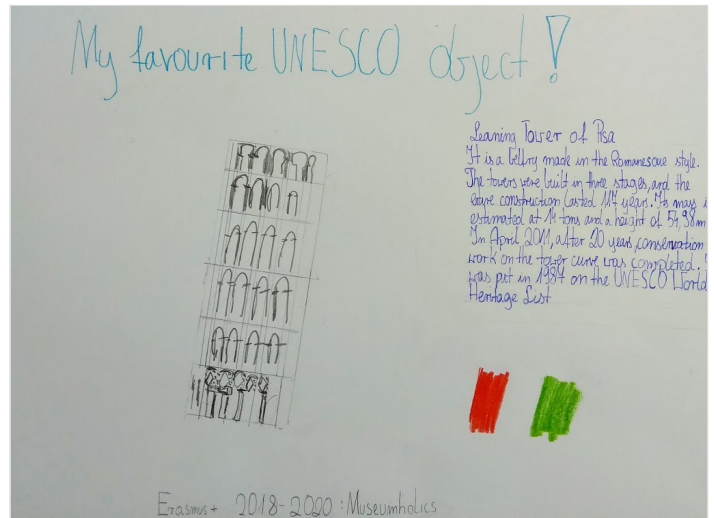 My favourite UNESCO object!
Leaning Tower of Pisa
It is a belfry made in the Romanesque style.
The towers were built in three stages, and the
construction lasted 117 years. Its mass i
estimated at 14 tons and a height of 54,98m
In April 2011, after 20 years, conservation
work on the tower curve was completed.
was put in 1987 on the UNESCO World
Heritage List
Erasmus+ 2018-2020: Museumholics